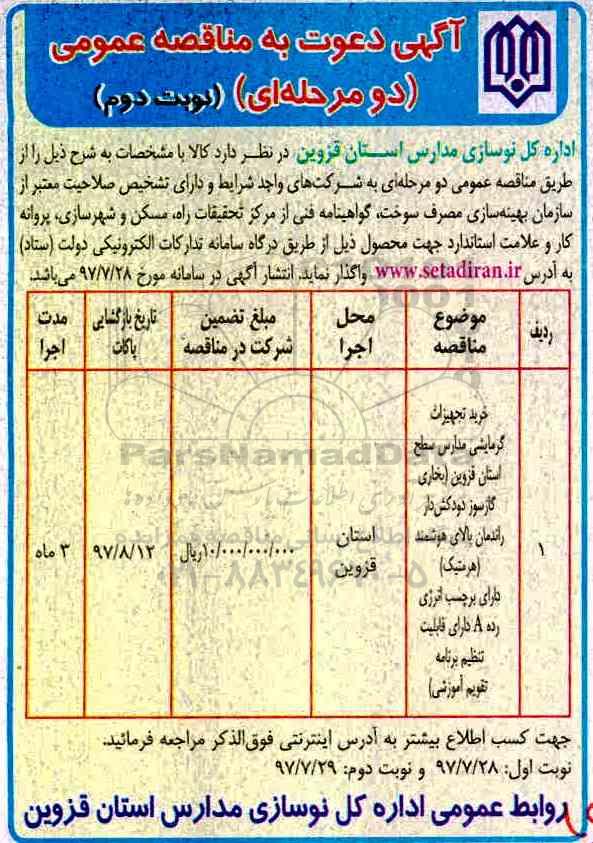 آگهی دعوت به مناقصه عمومی
(دو مرحله‌ای) (نوبت دوم)
اداره کل نوسازی مدارس استان قزوین در نظر دارد کالا با مشخصات به شرح ذیل را از
طریق مناقصه عمومی دو مرحله‌ای به شرکت‌های واجد شرایط و دارای تشخیص صلاحیت معتبر از
سازمان بهینه‌سازی مصرف سوخت، گواهینامه فنی از مرکز تحقیقات راه، مسکن و شهرسازی، پروانه
کار و علامت استاندارد جهت محصول ذیل از طریق درگاه سامانه تدارکات الکترونیکی دولت (ستاد)
به آدرس www.setadiran.ir واگذار نماید. انتشار آگهی در سامانه مورخ ۹۷/۷/۲۸ می‌باشد.
ردیف
موضوع
مناقصه
محل
اجرا
مبلغ تضمین
شرکت در مناقصه
تاریخ بازگشایی
پاکات
مدت
اجرا
۱
خرید تجهیزات
گرمایشی مدارس سطح
استان قزوین (بخاری
گازسوز دودکش‌دار
راندمان بالای هوشمند
(هرمتیک)
دارای برچسب انرژی
رده A دارای قابلیت
تنظیم برنامه
تقویم آموزشی)
استان
قزوین
۱۰/۰۰۰/۰۰۰/۰۰۰ریال
۹۷/۸/۱۲
۳ ماه
ParsNamadData
۰۲۱-۸۸۳۴۹۶۷۰-۵
جهت کسب اطلاع بیشتر به آدرس اینترنتی فوق‌الذکر مراجعه فرمائید.
نوبت اول: ۹۷/۷/۲۸ و نوبت دوم: ۹۷/۷/۲۹
روابط عمومی اداره کل نوسازی مدارس استان قزوین